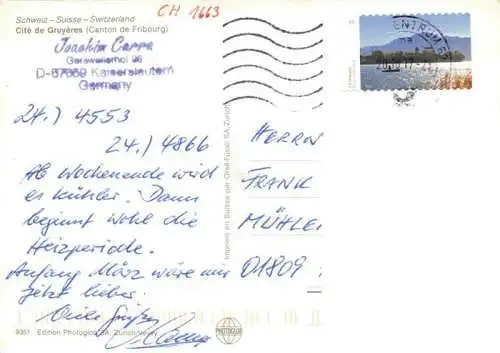 Schweiz - Suisse - Switzerland
CH 1663
Cité de Gruyères (Canton de Fribourg)
Joachim Carra
Gersweilerhof 26
D-67659 Kaiserslautern
Germany
24.) 4553
24.) 4866
Ab Wochenende wird
es kühler. Dann
beginnt wohl die
Heizperiode.
Anfang März wäre mir
jetzt lieber.
Viele Grüße
HERRN
FRANK
MÜHLE
01809
Imprimé en Suisse par Orell Füssli SA, Zurich
9351 Edition Photoglob SA, Zürich/Vevey
PHOTOGLOB